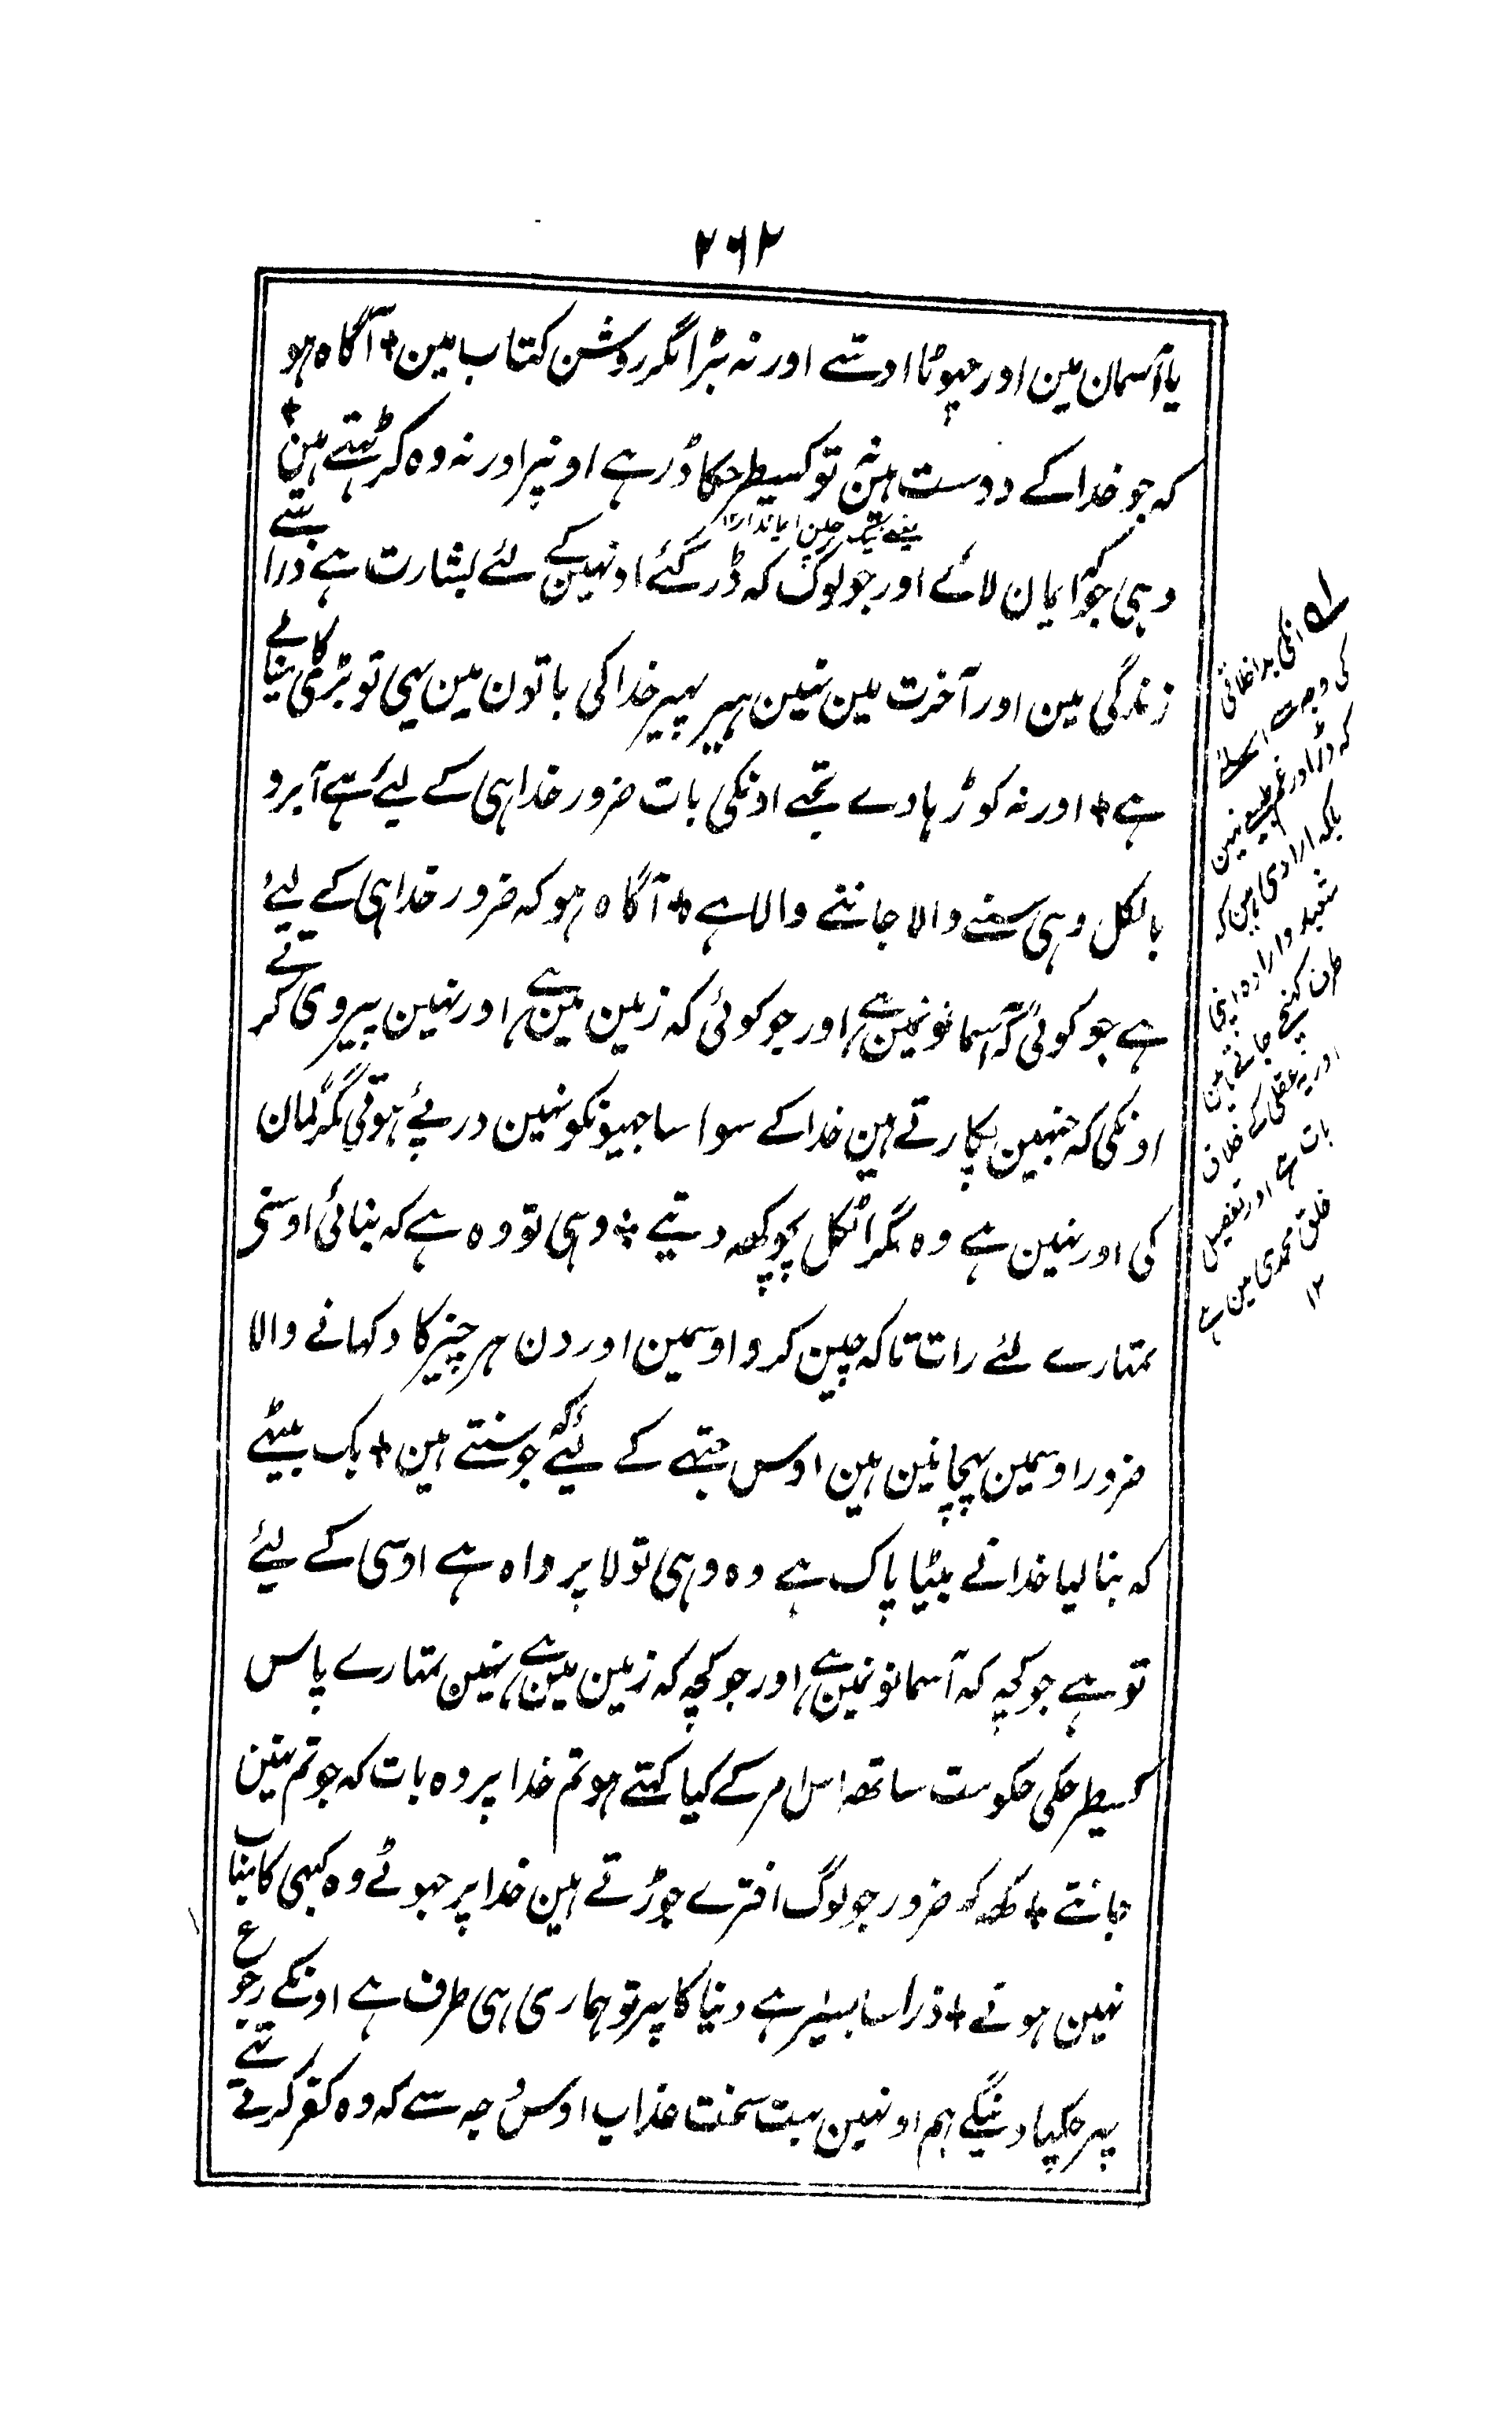 ۲۶۲
یا آسمان مین اور چھوٹا اوسّے اور نہ بڑا مگر روشن کتاب مین + آگاہ ہو
کہ جو خدا کے دوست ہین نہ تو کسیطرحکا ڈر ہے اونپر اور نہ وہ کڑہتے ہین +
وہی جو کہ ایمان لائے اور جو لوگ کہ ڈر گئے اونہین کے لئے بشارت ہے ذرا سے
زندگی مین اور آخرت مین نہین ہیر پہیر خدا کی باتون مین یہی تو بڑی کامیابی
ہے + اور نہ کوڑہاوے تجے اونکی بات ضرور خدا ہی کے لیئے ہے آبرو
بالکل وہی سننے والا جاننے والا ہے + آگاہ ہو کہ ضرور خدا ہی کے لیئے
ہے جو کوئی کہ آسمانونمین ہے اور جو کوئی کہ زمین مین ہے اور نہین پیروی کرتے
اونکی کہ جنہین پکارتے ہین خدا کے سوا ساجہیونکو نہین درپئے ہوتی مگر گمان
کی اور نہین ہے وہ مگر اٹکل پچو کچھ دیتے + وہی تو وہ ہے کہ بنائی اوسنی
تمہارے لئے رات تاکہ چین کرو اوسمین اور دن ہر چیز کا دکہانے والا
ضرور اوسمین پہچانین ہین اوس جتہے کے لیئے کہ جو سنتے ہین + بک بیٹھے
کہ بنا لیا خدا نے بیٹا پاک ہے وہ وہی تو لاپرواہ ہے اوسی کے لیئے
تو ہے جو کچہ کہ آسمانونمین ہے اور جو کچہ کہ زمین مین ہے نہین تمہارے پاس
کسیطرحکی حکومت ساتھ اس امر کے کیا کہتے ہو تم خدا پر وہ بات کہ جو تم نہین
جانتے + کھ کہ ضرور جو لوگ افترے جوڑتے ہین خدا پر جہوٹے وہ کبہی کامیاب
نہین ہوتے + ذرا سا بسیر ہے دنیا کا پہر تو ہماری ہی طرف ہے اونکے رجوع
پہر چکہا دینگے ہم اونہین بہت سخت عذاب اوس وجہ سے کہ وہ کفر کرتے تہے
انکی بد اخلاقی
کی وجہ سے اسلئے
کہ ڈر اور غم طبیعے نہین
بلکہ ارادی ہین کہ
وارادہ اپنی
طرف کہنچے جاتے ہین
اور یہ عقل کے خلاف
بات ہے اور تفصیل
خلق محمدی مین ہے
۱۲